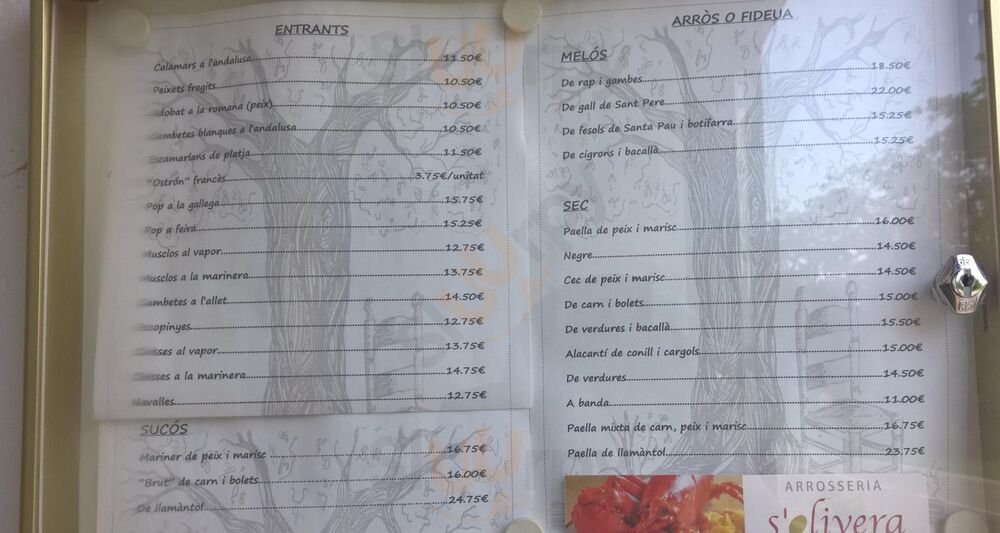 ENTRANTS
Calamars a l'andalusa 11.50€
Peixets fregits 10.50€
dobat a la romana (peix) 10.50€
ambetes blanques a l'andalusa 10.50€
scamarlans de platja 11.50€
"Ostrón" francès 3.75€/unitat
Pop a la gallega 15.75€
Pop a feira 15.25€
usclos al vapor 12.75€
usclos a la marinera 13.75€
ambetes a l'allet 14.50€
opinyes 12.75€
sses al vapor 13.75€
sses a la marinera 14.75€
Navalles 12.75€
SUCÓS
Mariner de peix i marisc 16.75€
"Brut" de carn i bolets 16.00€
De llamàntol 24.75€
ARRÒS O FIDEUA
MELÓS
De rap i gambes 18.50€
De gall de Sant Pere 22.00€
De fesols de Santa Pau i botifarra 15.25€
De cigrons i bacallà 15.25€
SEC
Paella de peix i marisc 16.00€
Negre 14.50€
Cec de peix i marisc 14.50€
De carn i bolets 15.00€
De verdures i bacallà 15.50€
Alacantí de conill i cargols 15.00€
De verdures 14.50€
A banda 11.00€
Paella mixta de carn, peix i marisc 16.75€
Paella de llamàntol 23.75€
ARROSSERIA
s'olivera